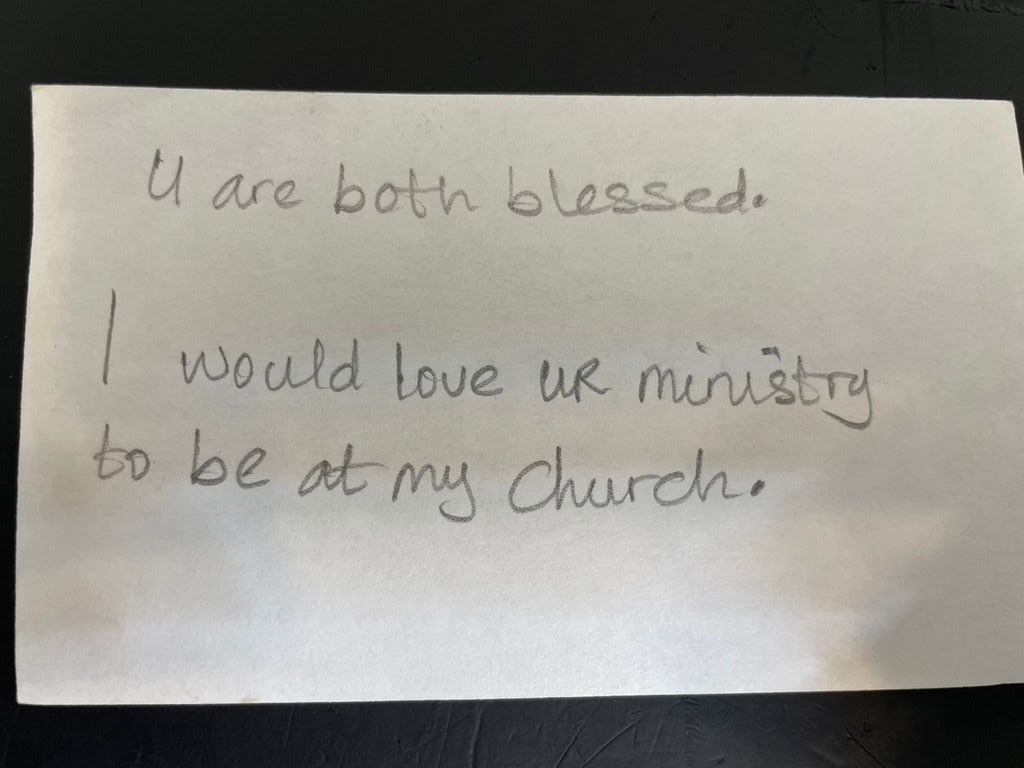 U are both blessed.
I would love UR ministry
to be at my church.